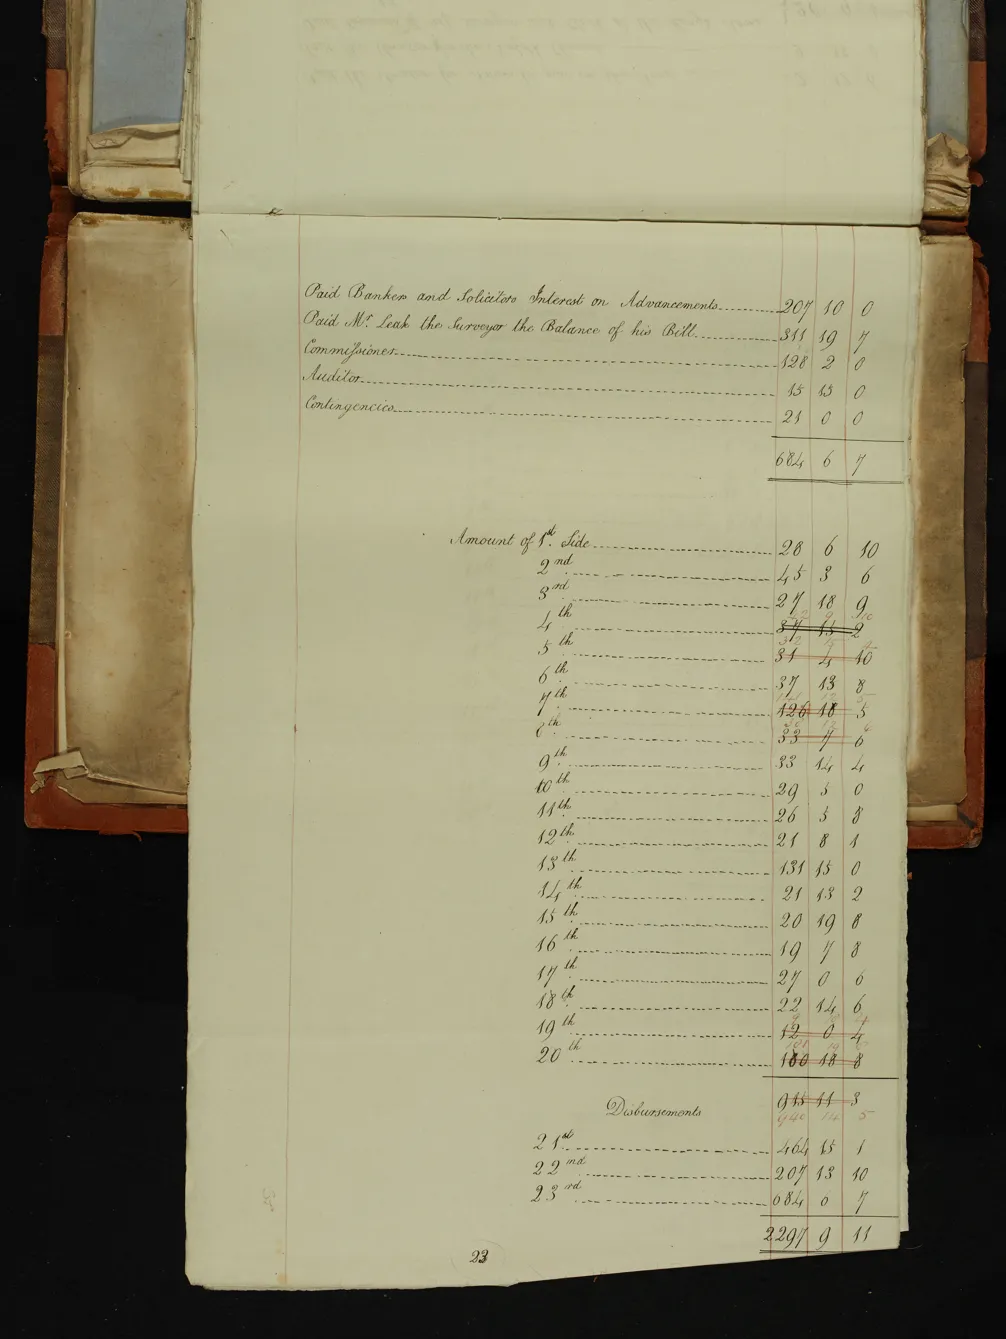 Paid Bankers and Solicitors Interest on Advancements 207 10 0
Paid Mr. Leak the Surveyor the Balance of his Bill 311 19 7
Commissioner 128 2 0
Auditor 15 15 0
Contingencies 21 0 0
684 6 7
Amount of 1st. Side 28 6 10
2nd 45 3 6
3rd 27 18 9
4th 37 15 2
5th 31 4 10
6th 37 13 8
7th 126 18 5
8th 33 7 6
9th 33 14 4
10th 29 5 0
11th 26 5 8
12th 21 8 1
13th 131 15 0
14th 21 13 2
15th 20 19 8
16th 19 7 8
17th 27 0 6
18th 22 14 6
19th 12 0 4
20th 180 18 8
915 11 3
Disbursements 940 14 5
21st 464 15 1
22nd 207 13 10
23rd 684 6 7
2297 9 11
23